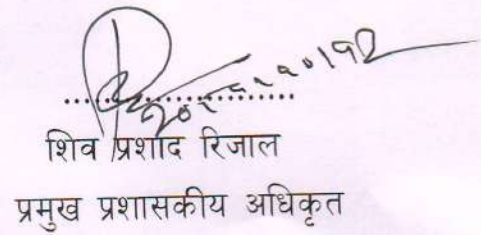 शिव प्रशाद रिजाल
प्रमुख प्रशासकीय अधिकृत